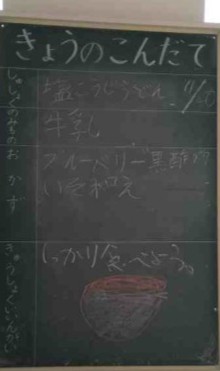 きょうのこんだて
しゅしょく
塩こうじうどん
のみもの
牛乳
おかず
ブルーベリー黒酢
いそ和え
しっかり食べよう。
きゅうしょくいいんかい